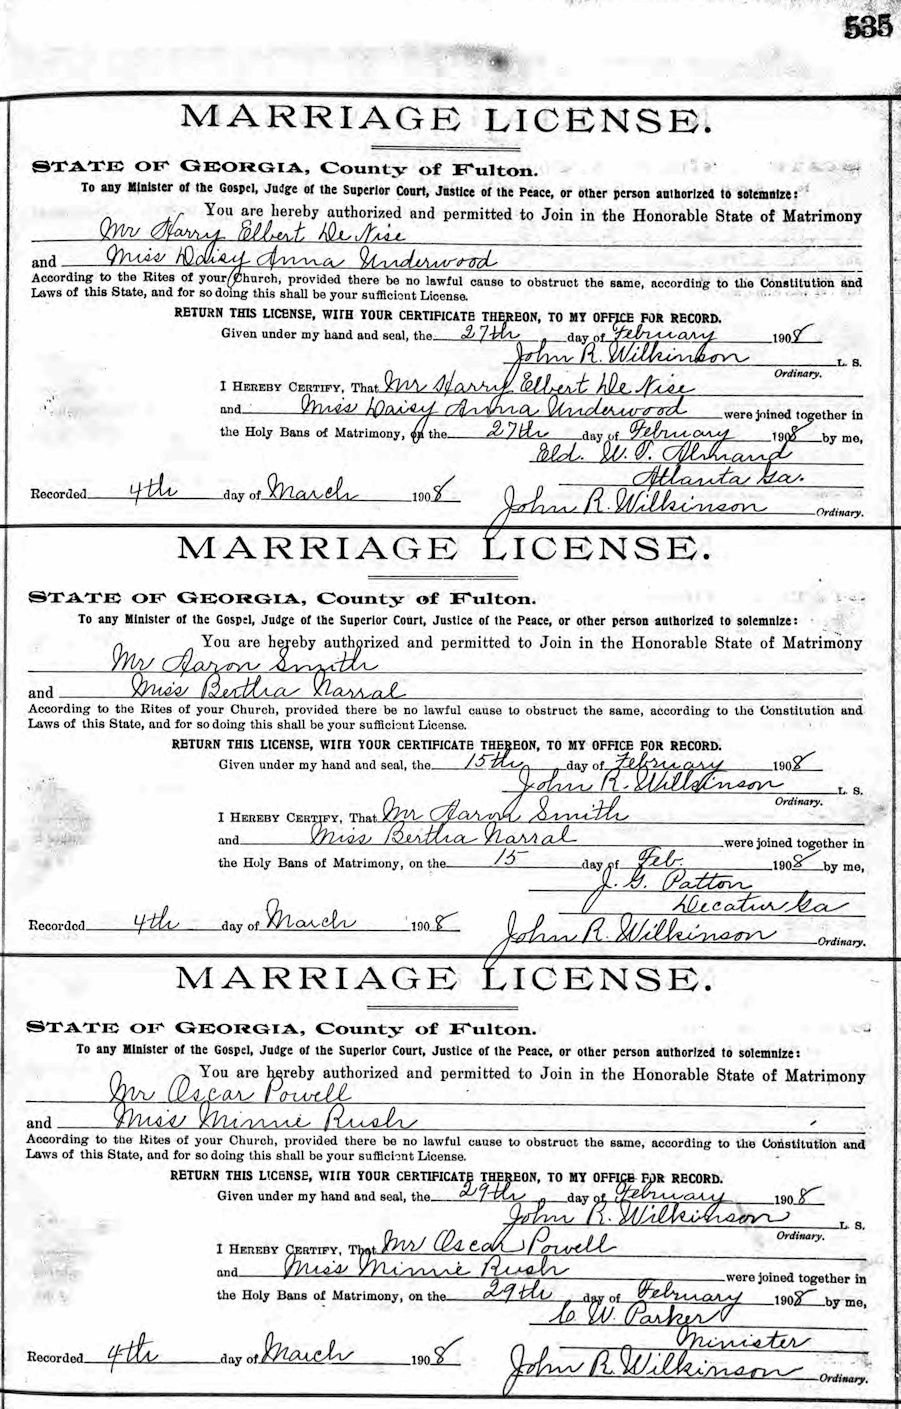 535
MARRIAGE LICENSE.
STATE OF GEORGIA, County of Fulton.
To any Minister of the Gospel, Judge of the Superior Court, Justice of the Peace, or other person authorized to solemnize:
You are hereby authorized and permitted to Join in the Honorable State of Matrimony
Mr Harry Elbert De Nise
and Miss Daisy Anna Underwood
According to the Rites of your Church, provided there be no lawful cause to obstruct the same, according to the Constitution and
Laws of this State, and for so doing this shall be your sufficient License.
RETURN THIS LICENSE, WITH YOUR CERTIFICATE THEREON, TO MY OFFICE FOR RECORD.
Given under my hand and seal, the 27th day of February 1908
John R. Wilkinson L. S.
Ordinary.
I HEREBY CERTIFY, That Mr Harry Elbert De Nise
and Miss Daisy Anna Underwood were joined together in
the Holy Bans of Matrimony, on the 27th day of February 1908 by me,
Eld. W. T. Almand
Atlanta Ga.
Recorded 4th day of March 1908 John R. Wilkinson Ordinary.
MARRIAGE LICENSE.
STATE OF GEORGIA, County of Fulton.
To any Minister of the Gospel, Judge of the Superior Court, Justice of the Peace, or other person authorized to solemnize:
You are hereby authorized and permitted to Join in the Honorable State of Matrimony
Mr Aaron Smith
and Miss Bertha Narral
According to the Rites of your Church, provided there be no lawful cause to obstruct the same, according to the Constitution and
Laws of this State, and for so doing this shall be your sufficient License.
RETURN THIS LICENSE, WITH YOUR CERTIFICATE THEREON, TO MY OFFICE FOR RECORD.
Given under my hand and seal, the 15th day of February 1908
John R. Wilkinson L. S.
Ordinary.
I HEREBY CERTIFY, That Mr Aaron Smith
and Miss Bertha Narral were joined together in
the Holy Bans of Matrimony, on the 15 day of Feb. 1908 by me,
J. G. Patton
Decatur Ga
Recorded 4th day of March 1908 John R. Wilkinson Ordinary.
MARRIAGE LICENSE.
STATE OF GEORGIA, County of Fulton.
To any Minister of the Gospel, Judge of the Superior Court, Justice of the Peace, or other person authorized to solemnize:
You are hereby authorized and permitted to Join in the Honorable State of Matrimony
Mr Oscar Powell
and Miss Minnie Rush
According to the Rites of your Church, provided there be no lawful cause to obstruct the same, according to the Constitution and
Laws of this State, and for so doing this shall be your sufficient License.
RETURN THIS LICENSE, WITH YOUR CERTIFICATE THEREON, TO MY OFFICE FOR RECORD.
Given under my hand and seal, the 29th day of February 1908
John R. Wilkinson L. S.
Ordinary.
I HEREBY CERTIFY, That Mr Oscar Powell
and Miss Minnie Rush were joined together in
the Holy Bans of Matrimony, on the 29th day of February 1908 by me,
C W. Parker
Minister
Recorded 4th day of March 1908 John R. Wilkinson Ordinary.